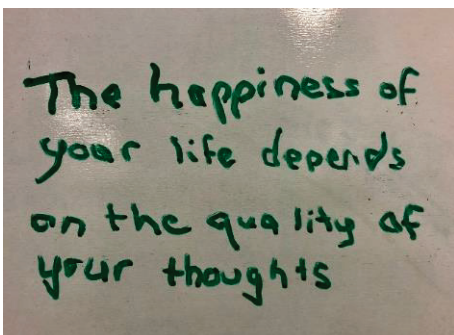 The happiness of
your life depends
on the quality of
your thoughts